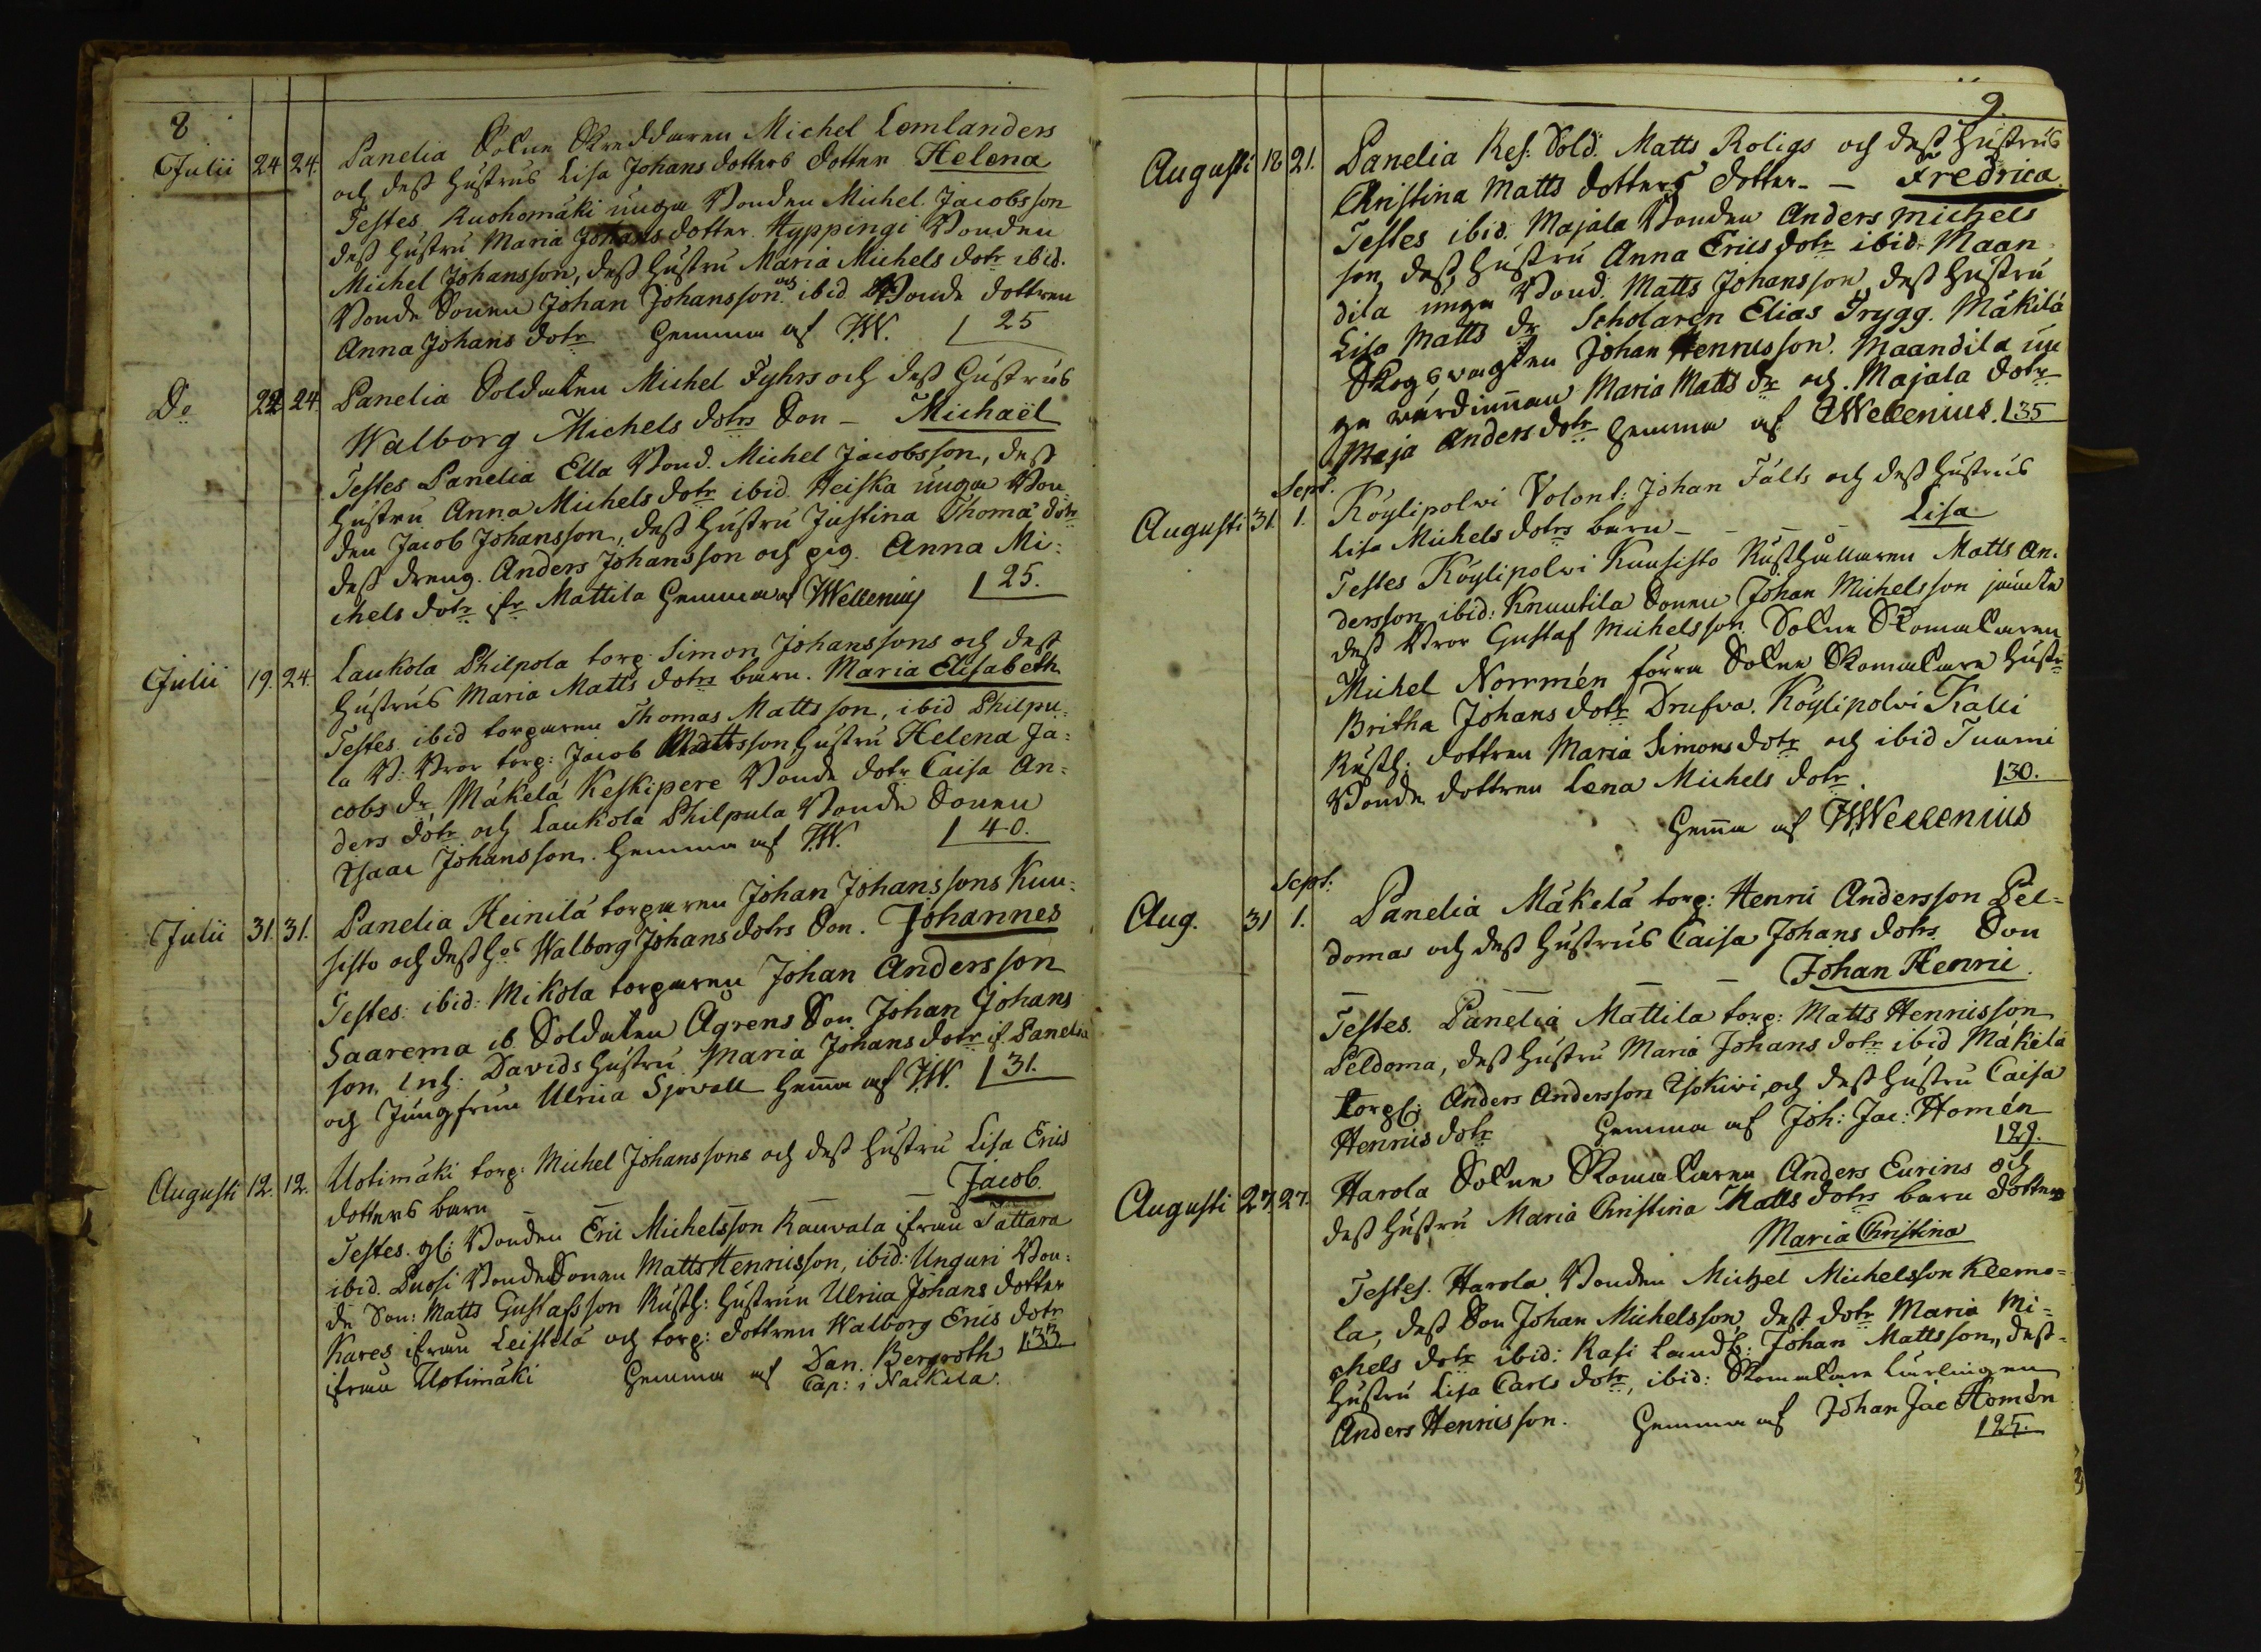 8
Julii 24 24. Panelia Sokne Skreddaren Michel Lemlanders
och dess hustrus Lisa Johans dotters dotter Helena
Testes. Ruohomäki unga Bonden Michel Jacobsson
dess hustru Maria Johans dotter. Hyppingi Bonden
Michel Johansson, dess hustru Maria Michels dotr ibid.
Bonde Sonen Johan Johansson och ibid Bonde dottren
Anna Johans dotr hemma af J.W. 25
Do 22 24. Panelia Soldaten Michel Fyhrs och dess hustrus
Walborg Michels dotrs Son - Michaël
Testes Panelia Ella Bond. Michel Jacobsson, dess
hustru Anna Michels dotr ibid. Heiska unga Bon-
den Jacob Johansson, dess hustru Justina Thomæ dotr
dess dreng. Anders Johansson och pig. Anna Mi-
chels dotr ifr Mattila hemma af JWellenius 25.
Julii 19. 24. Laukola Philpola torp: Simon Johanssons och dess
hustrus Maria Matts dotrs barn. Maria Elisabeth
Testes. ibid torparen Thomas Mattsson, ibid Philpu-
la B: Bror torp: Jacob Mattsson hustru Helena Ja-
cobs dr Mäkelä Keskipere Bonde dotr Caisa An-
ders dotr och Laukola Philpula Bonde Sonen
Isaac Johansson. hemma af J.W. 40.
Julii 31. 31. Panelia Heinilä torparen Johan Johanssons Kuu-
sisto och dess hs Walborg Johans dotrs Son. Johannes
Testes: ibid: Mikola torparen Johan Andersson
Saarema ib. Soldaten Ågrens Son Johan Johans
son, Inh: Davids hustru Maria Johans dotr if. Panelia
och Jungfrun Ulrica Sjovall hema af J.W. 31.
Augusti 12. 12. Uotimäki torp: Michel Johanssons och dess hustru Lisa Erics
dotters barn - - - Jacob.
Testes. gl: Bonden Eric Michelsson Rauvala ifrån Tattara
ibid. Puosi Bonde Sonen Matts Henricsson, ibid: Unguri Bon-
de Son: Matts Gustafsson Rusth: hustrun Ulrica Johans dotter
Kares ifrån Leistelä och torp: dottren Walborg Erics dotr
ifrån Uotimäki hemma af Dan. Bergroth 33.
Cap: i Nackila.
9.
Augusti 18 21. Panelia Res: Sold. Matts Roligs och dess hustrus
Christina Matts dotters dotter - - Fredrica.
Testes ibid. Majala Bonden Anders Michels
son, dess hustru Anna Erics dotr ibid. Maan
dila unga Bond. Matts Johansson dess hustru
Lisa Matts dr Scholaren Elias Trygg. Mäkilä
Skogswagten Johan Henricsson. Maandila un
ga wärdinnan Maria Matts dr och Majala dotr
Maja Anders dotr hemma af JWellenius. 35
Sept.
Augusti 31. 1. Köylipolwi Volont: Johan Fälts och dess hustrus
Lisa Michels dotrs barn - - - Lisa
Testes Köylipolwi Kuusisto Rusthållaren Matts An-
dersson, ibid: Knuutila Sonen Johan Michelsson jämte
dess Bror Gustaf Michelsson. Sokne Skomakaren
Michel Norrmén förra Sokne Skomakare hustr
Britha Johans dotr Drufva. Köylipolwi Kalli
Rusth: dottren Maria Simons dotr och ibid Tuomi
Bonde dottren Lena Michels dotr. 30.
Hema af JWellenius
Sept:
Aug. 31 1. Panelia Mäkelä torp: Henric Andersson Pel-
domas och dess hustrus Caisa Johans dotrs Son
- - - Johan Henric
Testes. Panelia Mattila torp: Matts Henricsson
Peldoma, dess hustru Maria Johans dotr ibid Mäkelä
torp: Anders Andersson Isokiwi, och dess hustru Caisa
Henrics dotr hemma af Joh: Jac: Homén
29.
Augusti 27. 27. Harola Sokne Skomakaren Anders Eurins och
dess hustru Maria Christina Matts dotrs barn dotter
Maria Christina
Testes. Harola Bonden Michel Michelsson Kleemo-
la, dess Son Johan Michelsson, dess dotr Maria Mi-
chels dotr ibid: Rasi Landb: Johan Mattsson, dess
hustru Lisa Carls dotr, ibid: Skomakare Lärlingen
Anders Henricsson. hemma af Johan Jac Homén
25.